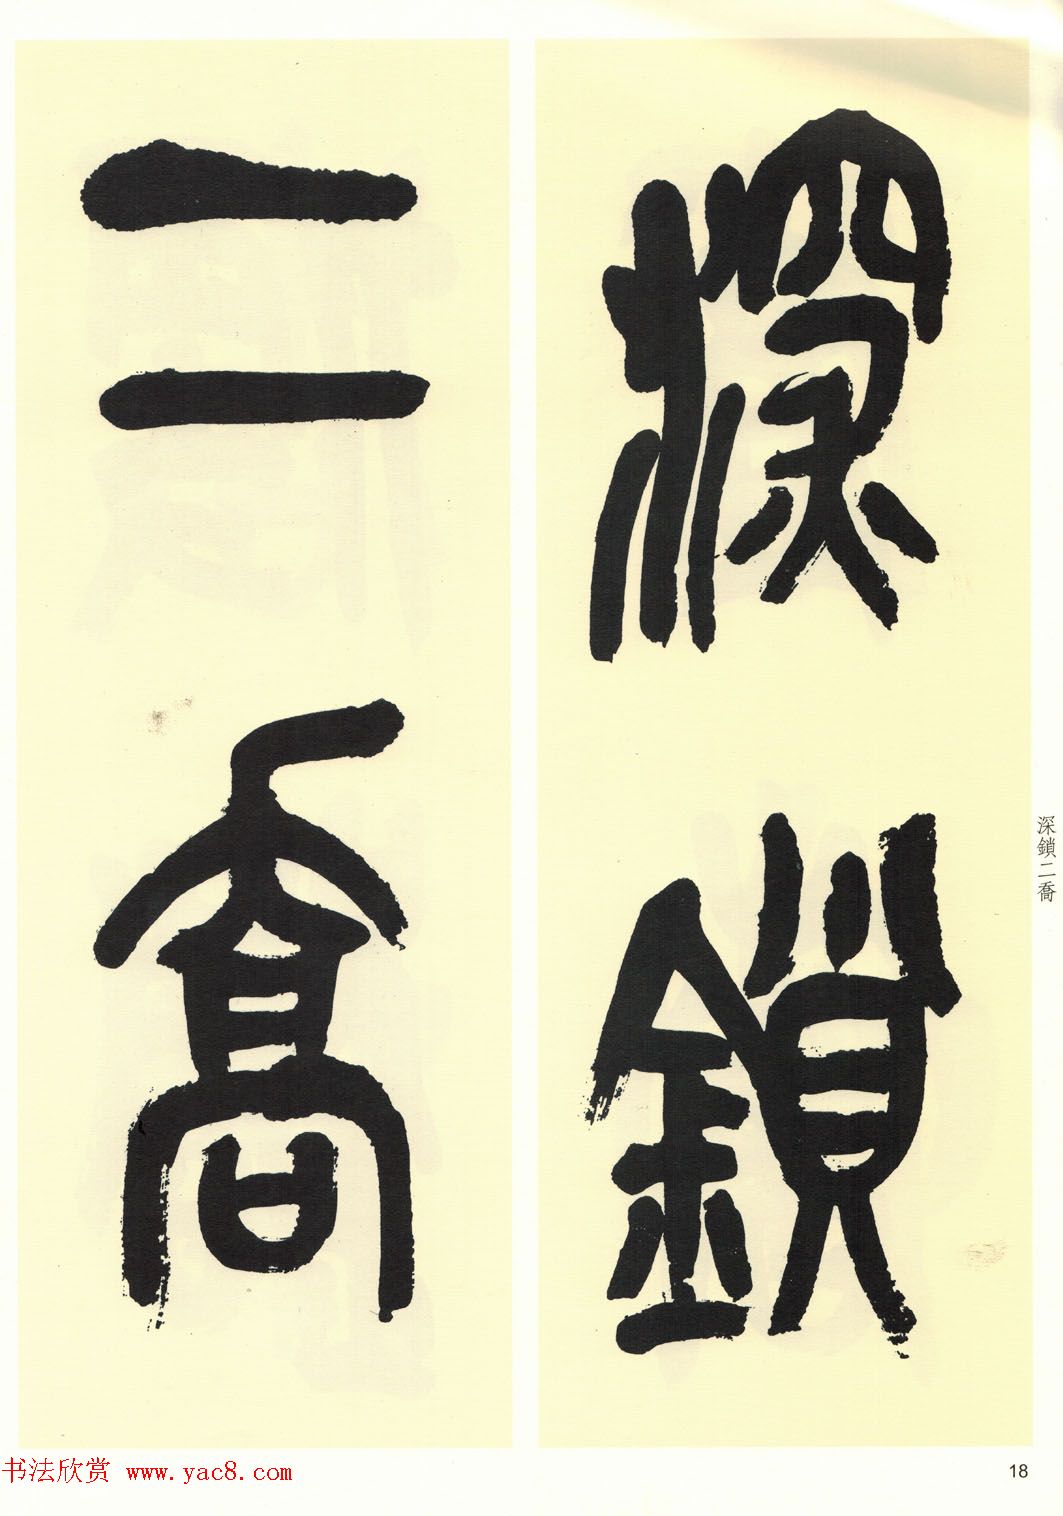 深鎖
二喬
深鎖二喬
书法欣赏 www.yac8.com
18